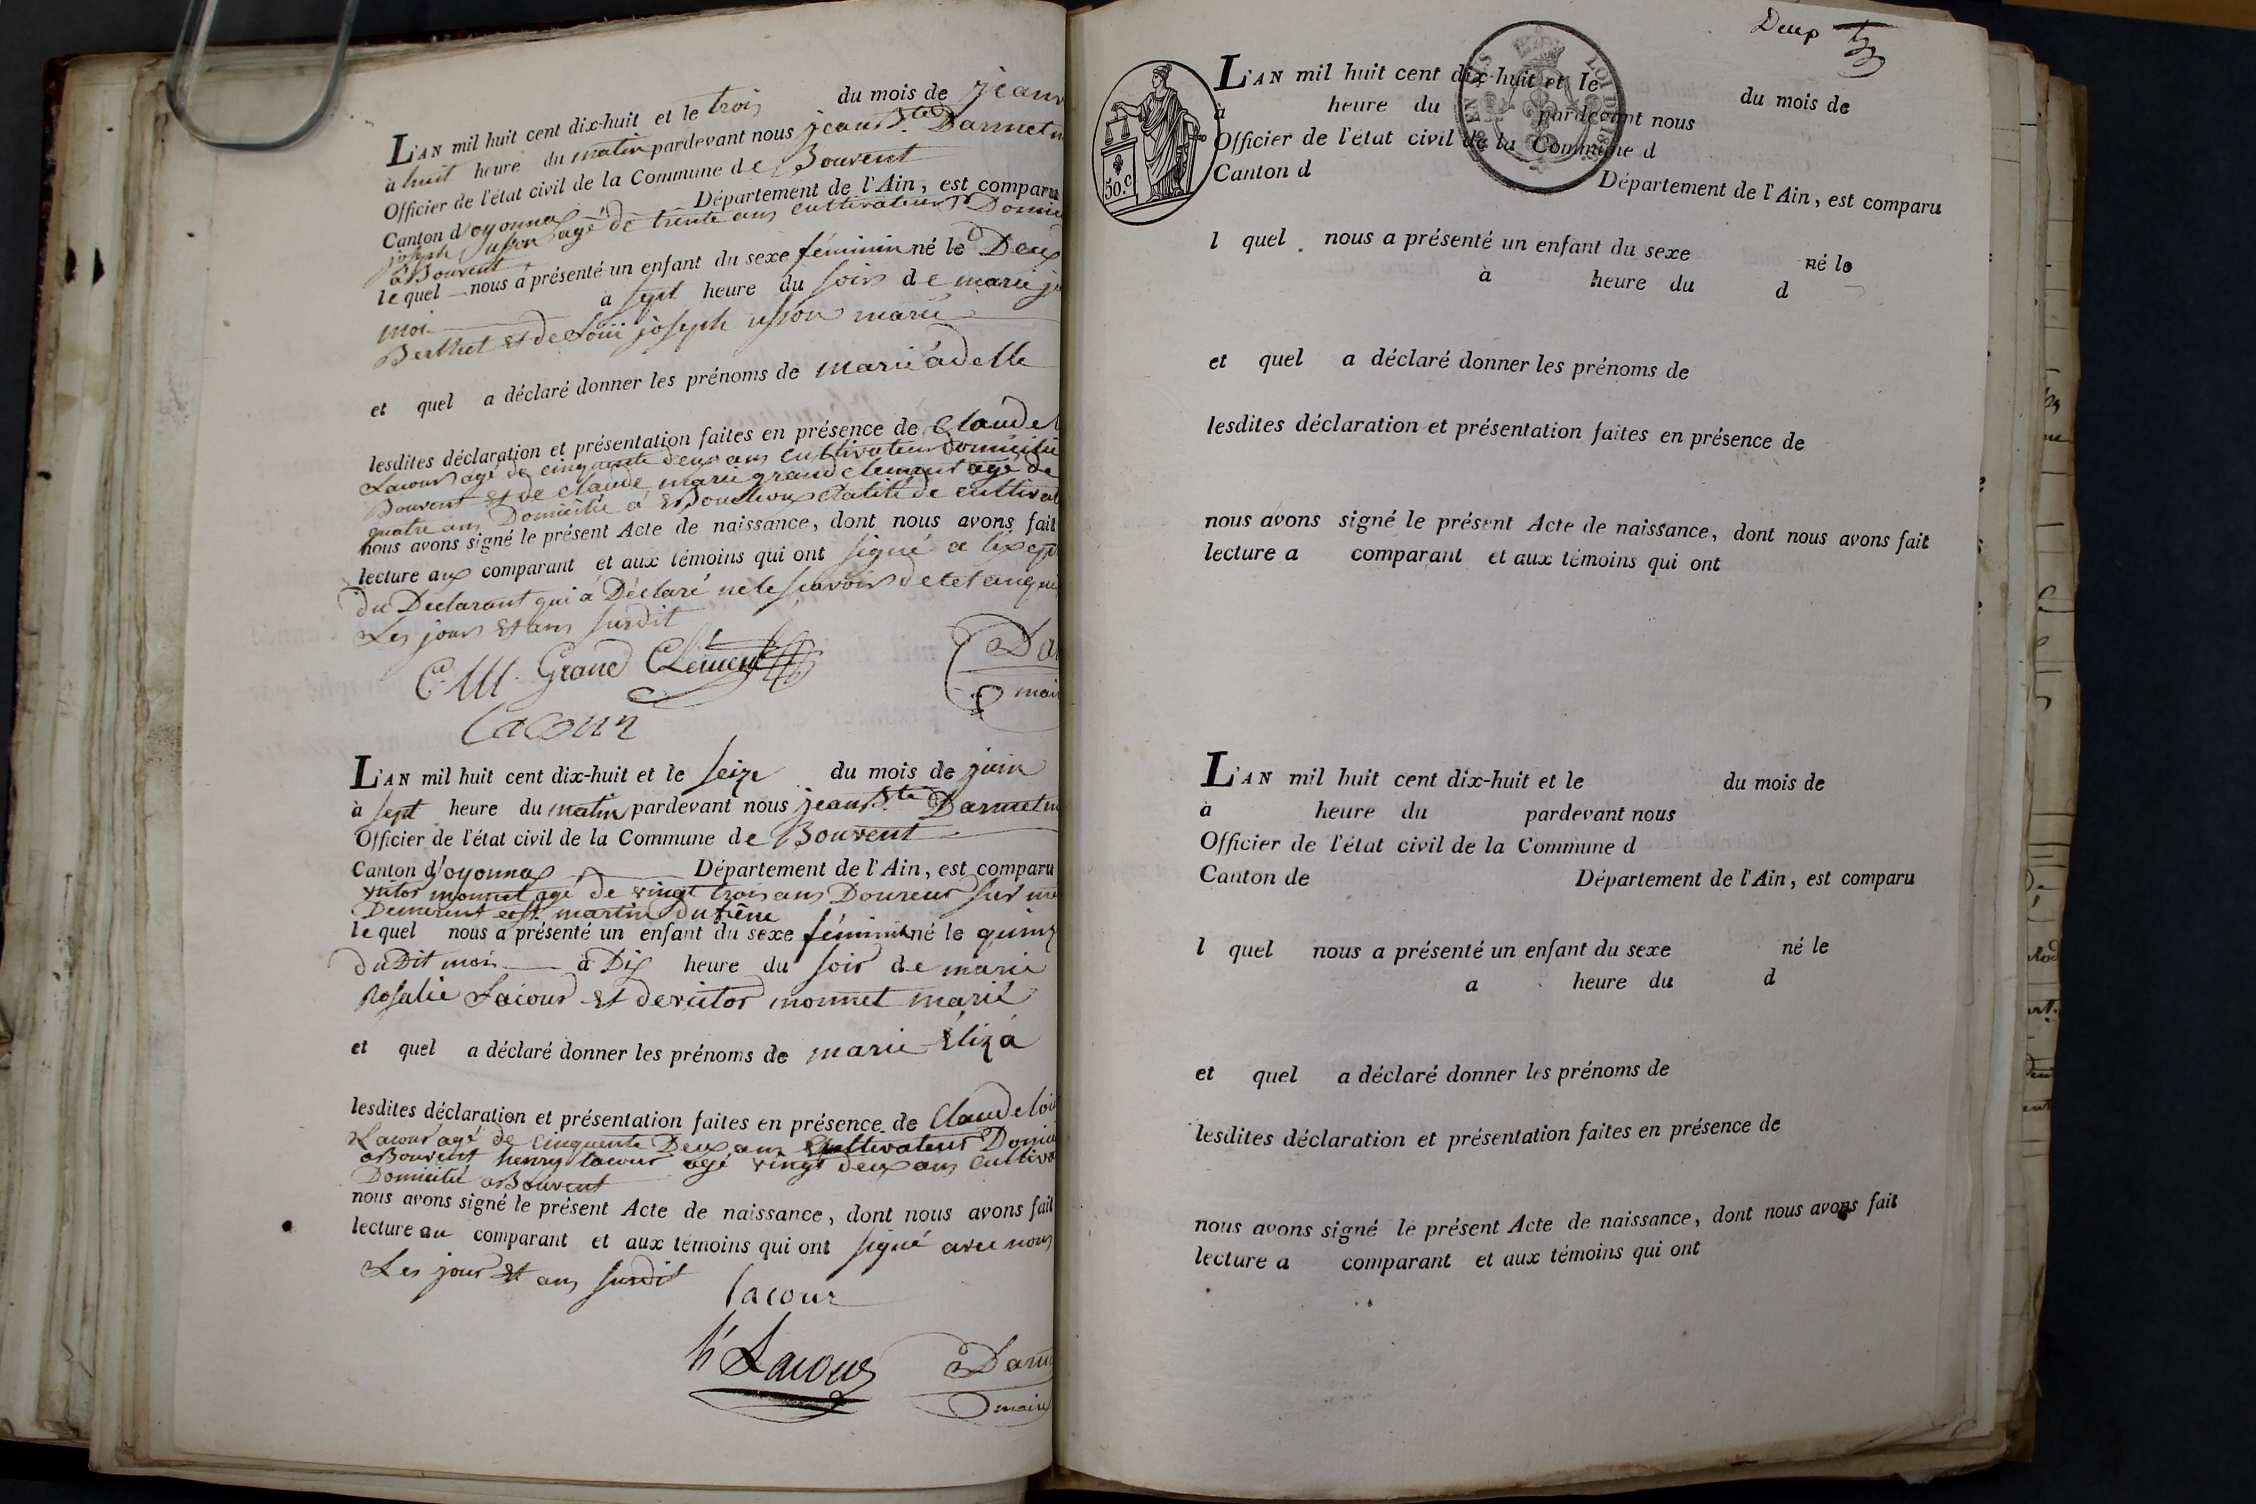 L'AN mil huit cent dix-huit et le trois du mois de jeanv
à huit heure du matin pardevant nous jean Bte Darmet
Officier de l'état civil de la Commune de Bouvent
Canton d'oyonnax Département de l'Ain, est comparu
joseph usson agé de trente ans cultivateur Domici
a Bouvent
le quel nous a présenté un enfant du sexe féminin né le Deux
moi à sept heure du soir de marie
Berthet et de joseph usson marié
et quel a déclaré donner les prénoms de marie adelle
lesdites déclaration et présentation faites en présence de Claude
Lacour agé de cinquante deux ans cultivateur domicilié
Bouvent et de claude marie grand clement agé de
quatre ans Domicilié a Bouchoux de cultivat
nous avons signé le présent Acte de naissance, dont nous avons fait
lecture aux comparant et aux témoins qui ont signé a
du Declarant qui a Déclaré ne le scavoir de ce
Les jour et ans susdit
C. M. Grand Clément
Da
mai
Lacour
L'AN mil huit cent dix-huit et le seize du mois de juin
à sept heure du matin pardevant nous jean Bte Darmet
Officier de l'état civil de la Commune de Bouvent
Canton d'oyonnax Département de l'Ain, est comparu
victor monnet agé de vingt trois ans Doureur sur
Demeurant a st martin du frêne
le quel nous a présenté un enfant du sexe féminin né le quinz
du Dit moi à Dix heure du soir de marie
Rosalie Lacour et de victor monnet marié
et quel a déclaré donner les prénoms de marie Éliza
lesdites déclaration et présentation faites en présence de Claude loui
Lacour agé de cinquente Deux ans Cultivateur Domici
a Bouvent henry lacour agé vingt deux ans cultiva
Domicilié a Bouvent
nous avons signé le présent Acte de naissance, dont nous avons fait
lecture au comparant et aux témoins qui ont signé avec nous
Les jour et ans susdit
lacour
h Lacour
Darm
maire
Deux
50.c
L'AN mil huit cent dix-huit et le du mois de
à heure du pardevant nous
Officier de l'état civil de la Commune d
Canton d Département de l'Ain, est comparu
l quel nous a présenté un enfant du sexe né le
à heure du d
et quel a déclaré donner les prénoms de
lesdites déclaration et présentation faites en présence de
nous avons signé le présent Acte de naissance, dont nous avons fait
lecture a comparant et aux témoins qui ont
L'AN mil huit cent dix-huit et le du mois de
à heure du pardevant nous
Officier de l'état civil de la Commune d
Canton de Département de l'Ain, est comparu
l quel nous a présenté un enfant du sexe né le
a heure du d
et quel a déclaré donner les prénoms de
lesdites déclaration et présentation faites en présence de
nous avons signé le présent Acte de naissance, dont nous avons fait
lecture a comparant et aux témoins qui ont